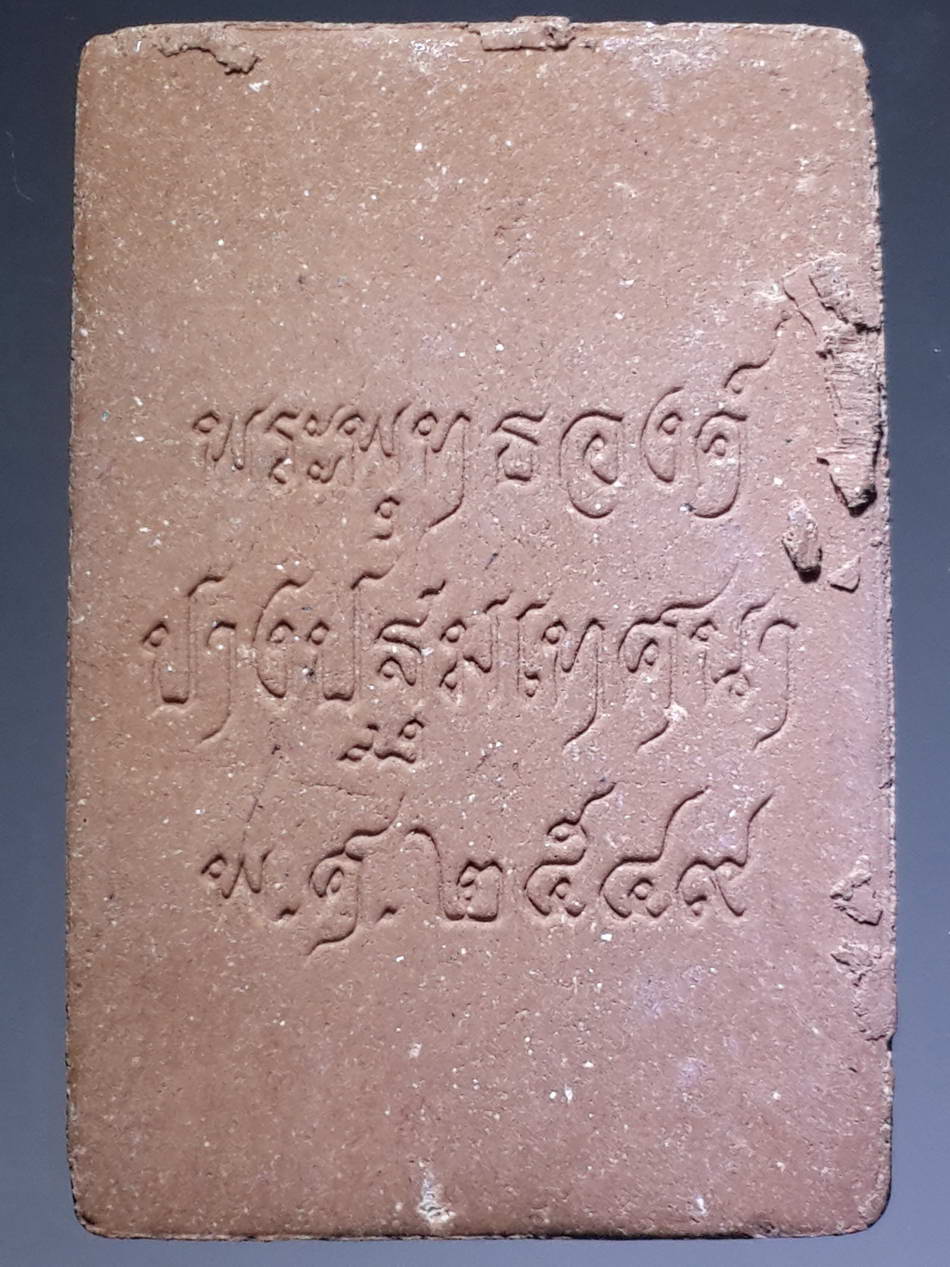 พระพุทธองค์
ปางปฐมเทศนา
พ.ศ. ๒๕๔๙